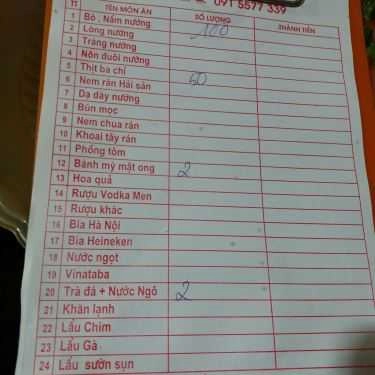 091 5577 339
TT TÊN MÓN ĂN SỐ LƯỢNG THÀNH TIỀN
1 Bò, Nầm nướng 100
2 Lòng nướng
3 Tràng nướng
4 Nõn đuôi nướng
5 Thịt ba chỉ
6 Nem rán Hải sản 60
7 Dạ dày nướng
8 Bún mọc
9 Nem chua rán
10 Khoai tây rán
11 Phồng tôm
12 Bánh mỳ mật ong 2
13 Hoa quả
14 Rượu Vodka Men
15 Rượu khác
16 Bia Hà Nội
17 Bia Heineken
18 Nước ngọt
19 Vinataba
20 Trà đá + Nước Ngô 2
21 Khăn lạnh
22 Lẩu Chim
23 Lẩu Gà
24 Lẩu sườn sụn